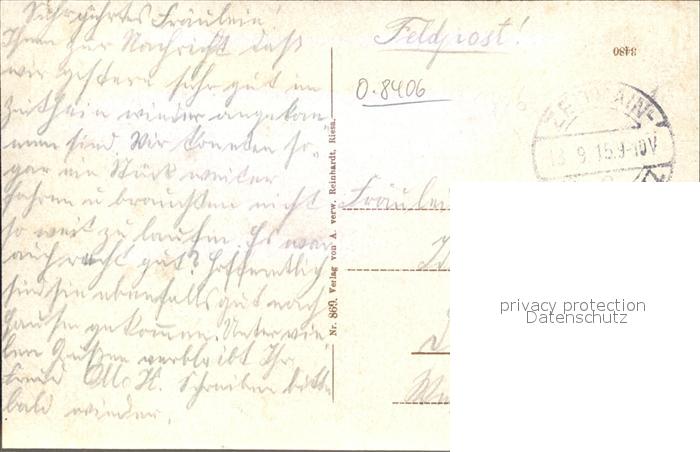 Sehr geehrtes Fräulein!
Ihnen zur Nachricht daß
wir gestern sehr gut in
Zeithain wieder angekom-
men sind. Wir konnten so-
gar ein Stück weiter
fahren u brauchten nicht
so weit zu laufen. Es war
auch recht gut? Hoffentlich
sind sie ebenfalls gut nach
Hause gekommen. Unter vie-
len Grüßen verbleibt Ihr
Freund Otto K. Schreiben bitte
bald wieder.
Nr. 869. Verlag von A. verw. Reinhardt, Riesa.
Feldpost!
3480
0.8406
ZEITHAIN
13 9 15.9-10V
Fräulein
privacy protection
Datenschutz